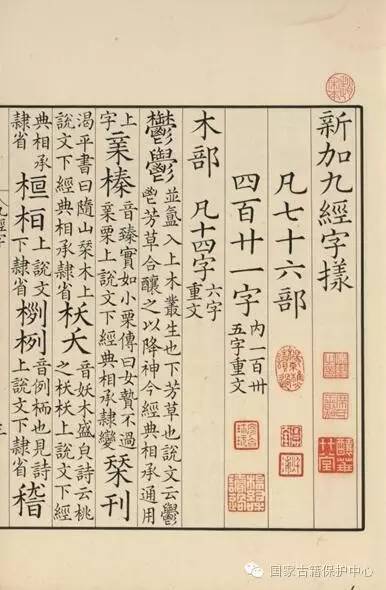 新加九經字樣
凡七十六部
四百廿一字 內一百卅五字重文
木部 凡十四字 六字重文
鬱鬱 並氳入上木叢生也下芳草也說文云鬱鬯芳草合釀之以降神今經典相承通用
上字 亲榛 音臻實如小栗傳曰女贄不過亲栗上說文下經典相承隸變 栞刊
渴平書曰隨山栞木上說文下經典相承隸省 枖夭 音妖木盛皃詩云桃之枖枖上說文下經
典相承隸省 桓桓 上說文下隸省 栵栵 音例栭也見詩上說文下隸省 稽
九經字
三
国家古籍保护中心